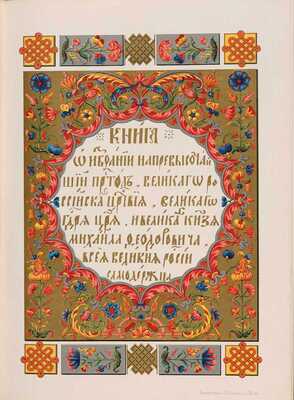 КНИГА
Ѡ ИЗБРАНИИ НАПРЕВЫСОЧАЙ
ШИЙ ПРТОЛЪ, ВЕЛИКАГѠ РО
ССИСКА ЦРТВИѦ, ВЕЛИКАГѠ
ГДРѦ ЦРѦ, И ВЕЛИКА КНЗѦ
МИХАИЛА ѲЕОДОРОВИЧА,
ВСЕѦ ВЕЛИКИѦ РОСИИ
САМОДЕРЖЦА